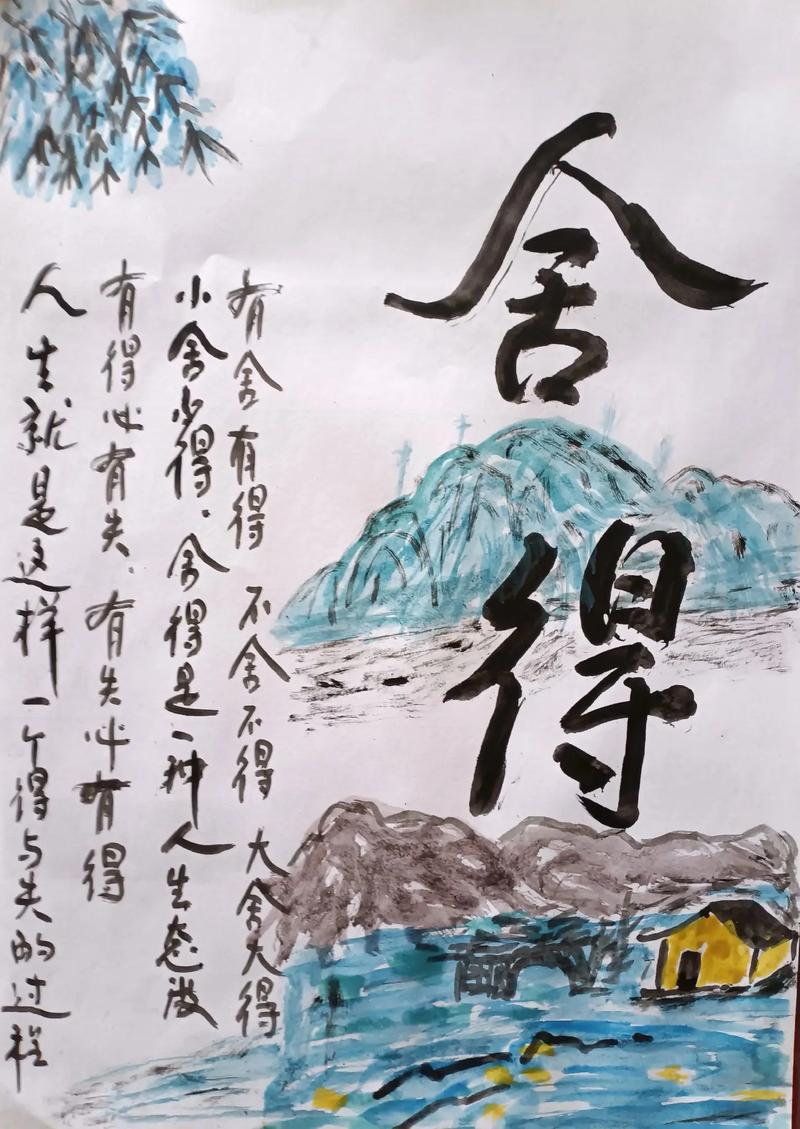 舍得
有舍有得 不舍不得 大舍大得
小舍少得.舍得是一种人生态度
有得必有失.有失必有得
人生就是这样一个得与失的过程